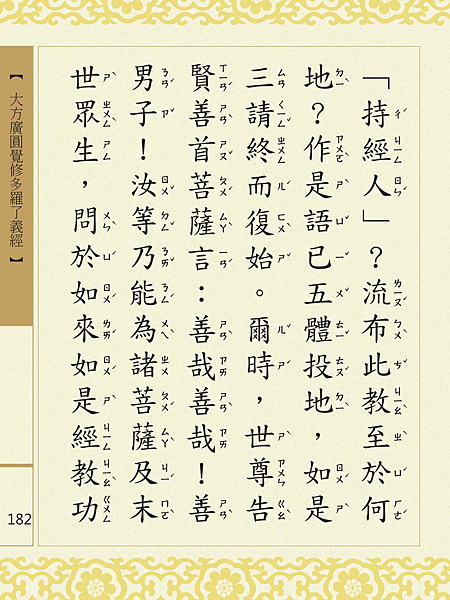 「持經人」？流布此教至於何
地？作是語已五體投地，如是
三請終而復始。爾時，世尊告
賢善首菩薩言：善哉善哉！善
男子！汝等乃能為諸菩薩及末
世眾生，問於如來如是經教功
【大方廣圓覺修多羅了義經】
182